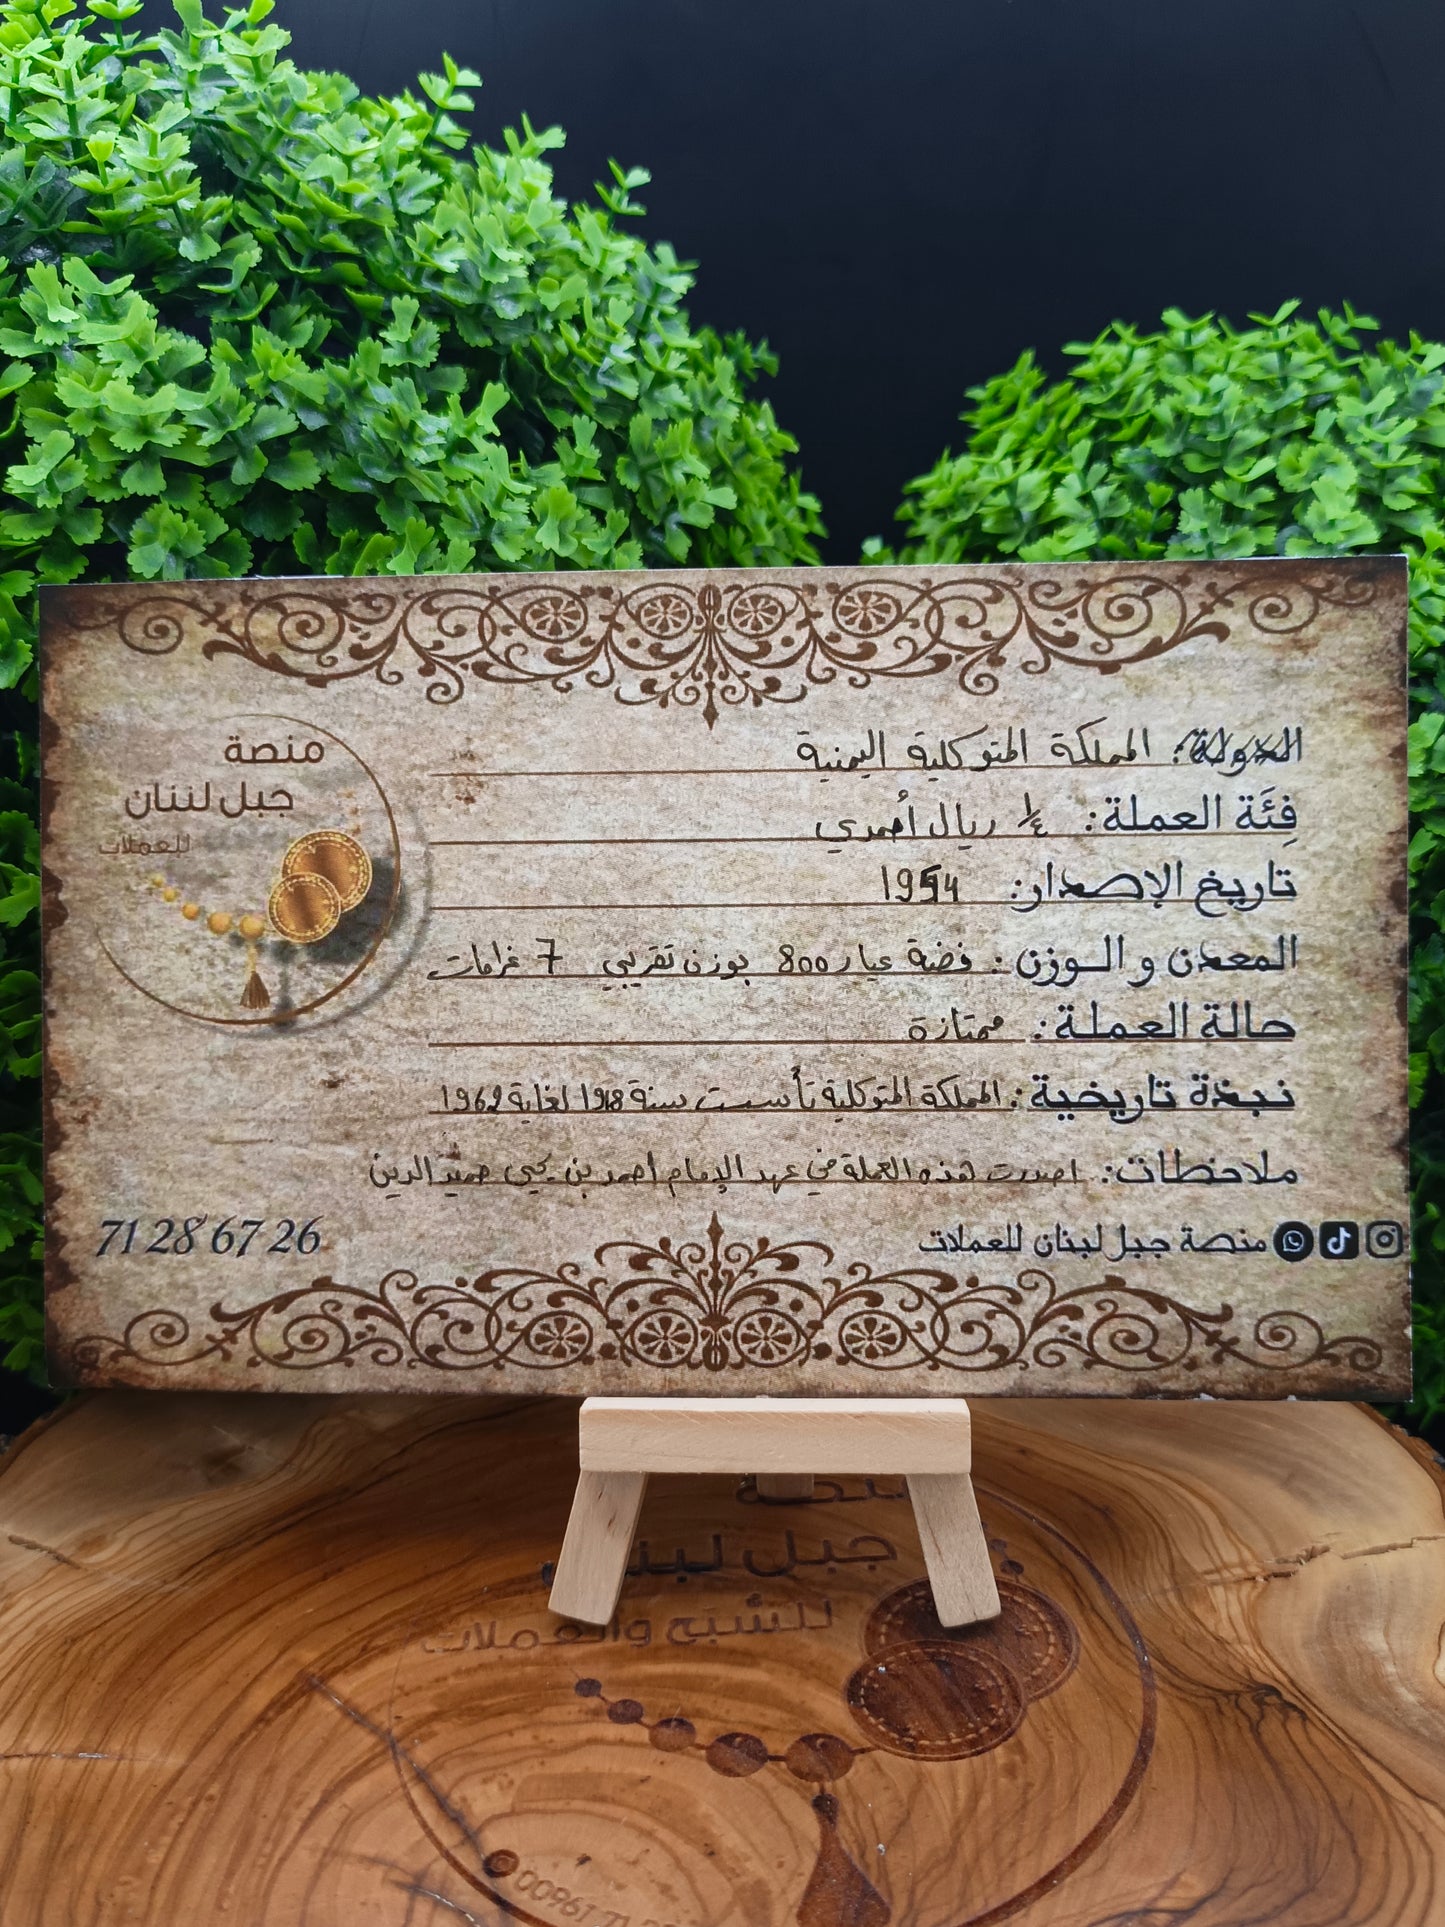 منصة
جبل لبنان
للعملات
الدولة: المملكة المتوكلية اليمنية
فِئَة العملة: ¼ ريال أحمدي
تاريخ الإصدار: 1954
المعدن و الوزن: فضة عيار 800 بوزن تقريبي 7 غرامات
حالة العملة: ممتازة
نبذة تاريخية: المملكة المتوكلية تأسست سنة 1918 لغاية 1962
ملاحظات: اصدرت هذه العملة في عهد الإمام احمد بن يحيى حميد الدين
71 28 67 26
منصة جبل لبنان للعملات
جبل
للشبح والعملات
00961 71